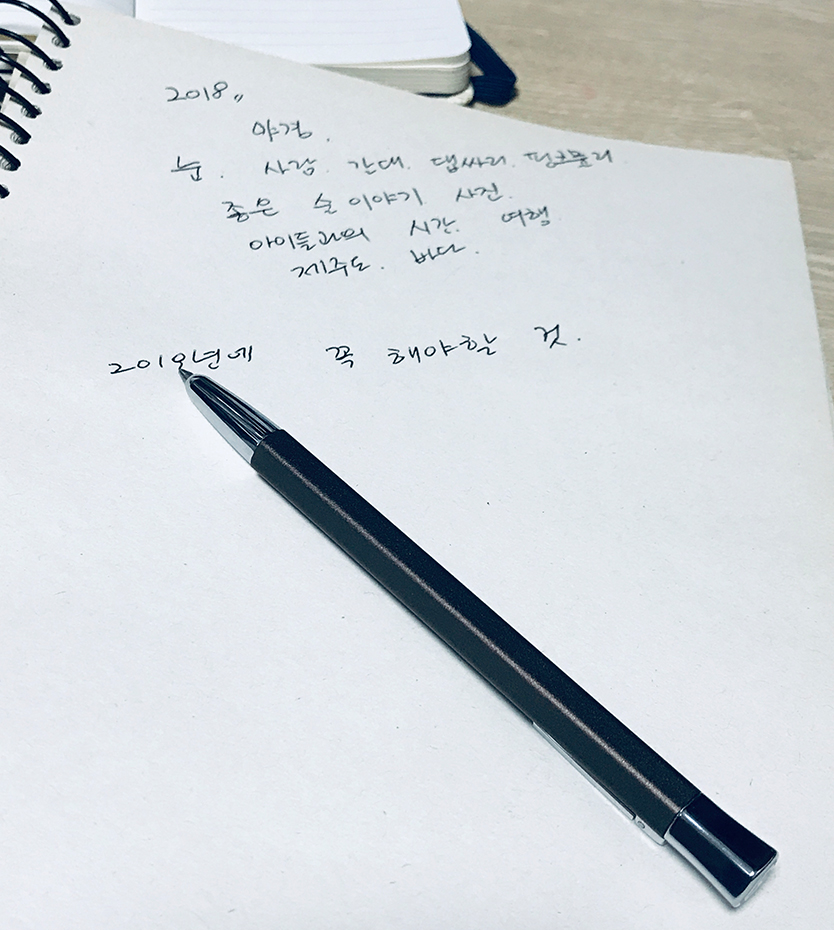 2018〃
야경.
눈. 사람. 갈대. 댑싸리. 핑크뮬리
좋은 술 이야기 사진.
아이들과의 시간. 여행.
제주도. 바다.
2019년에 꼭 해야할 것.